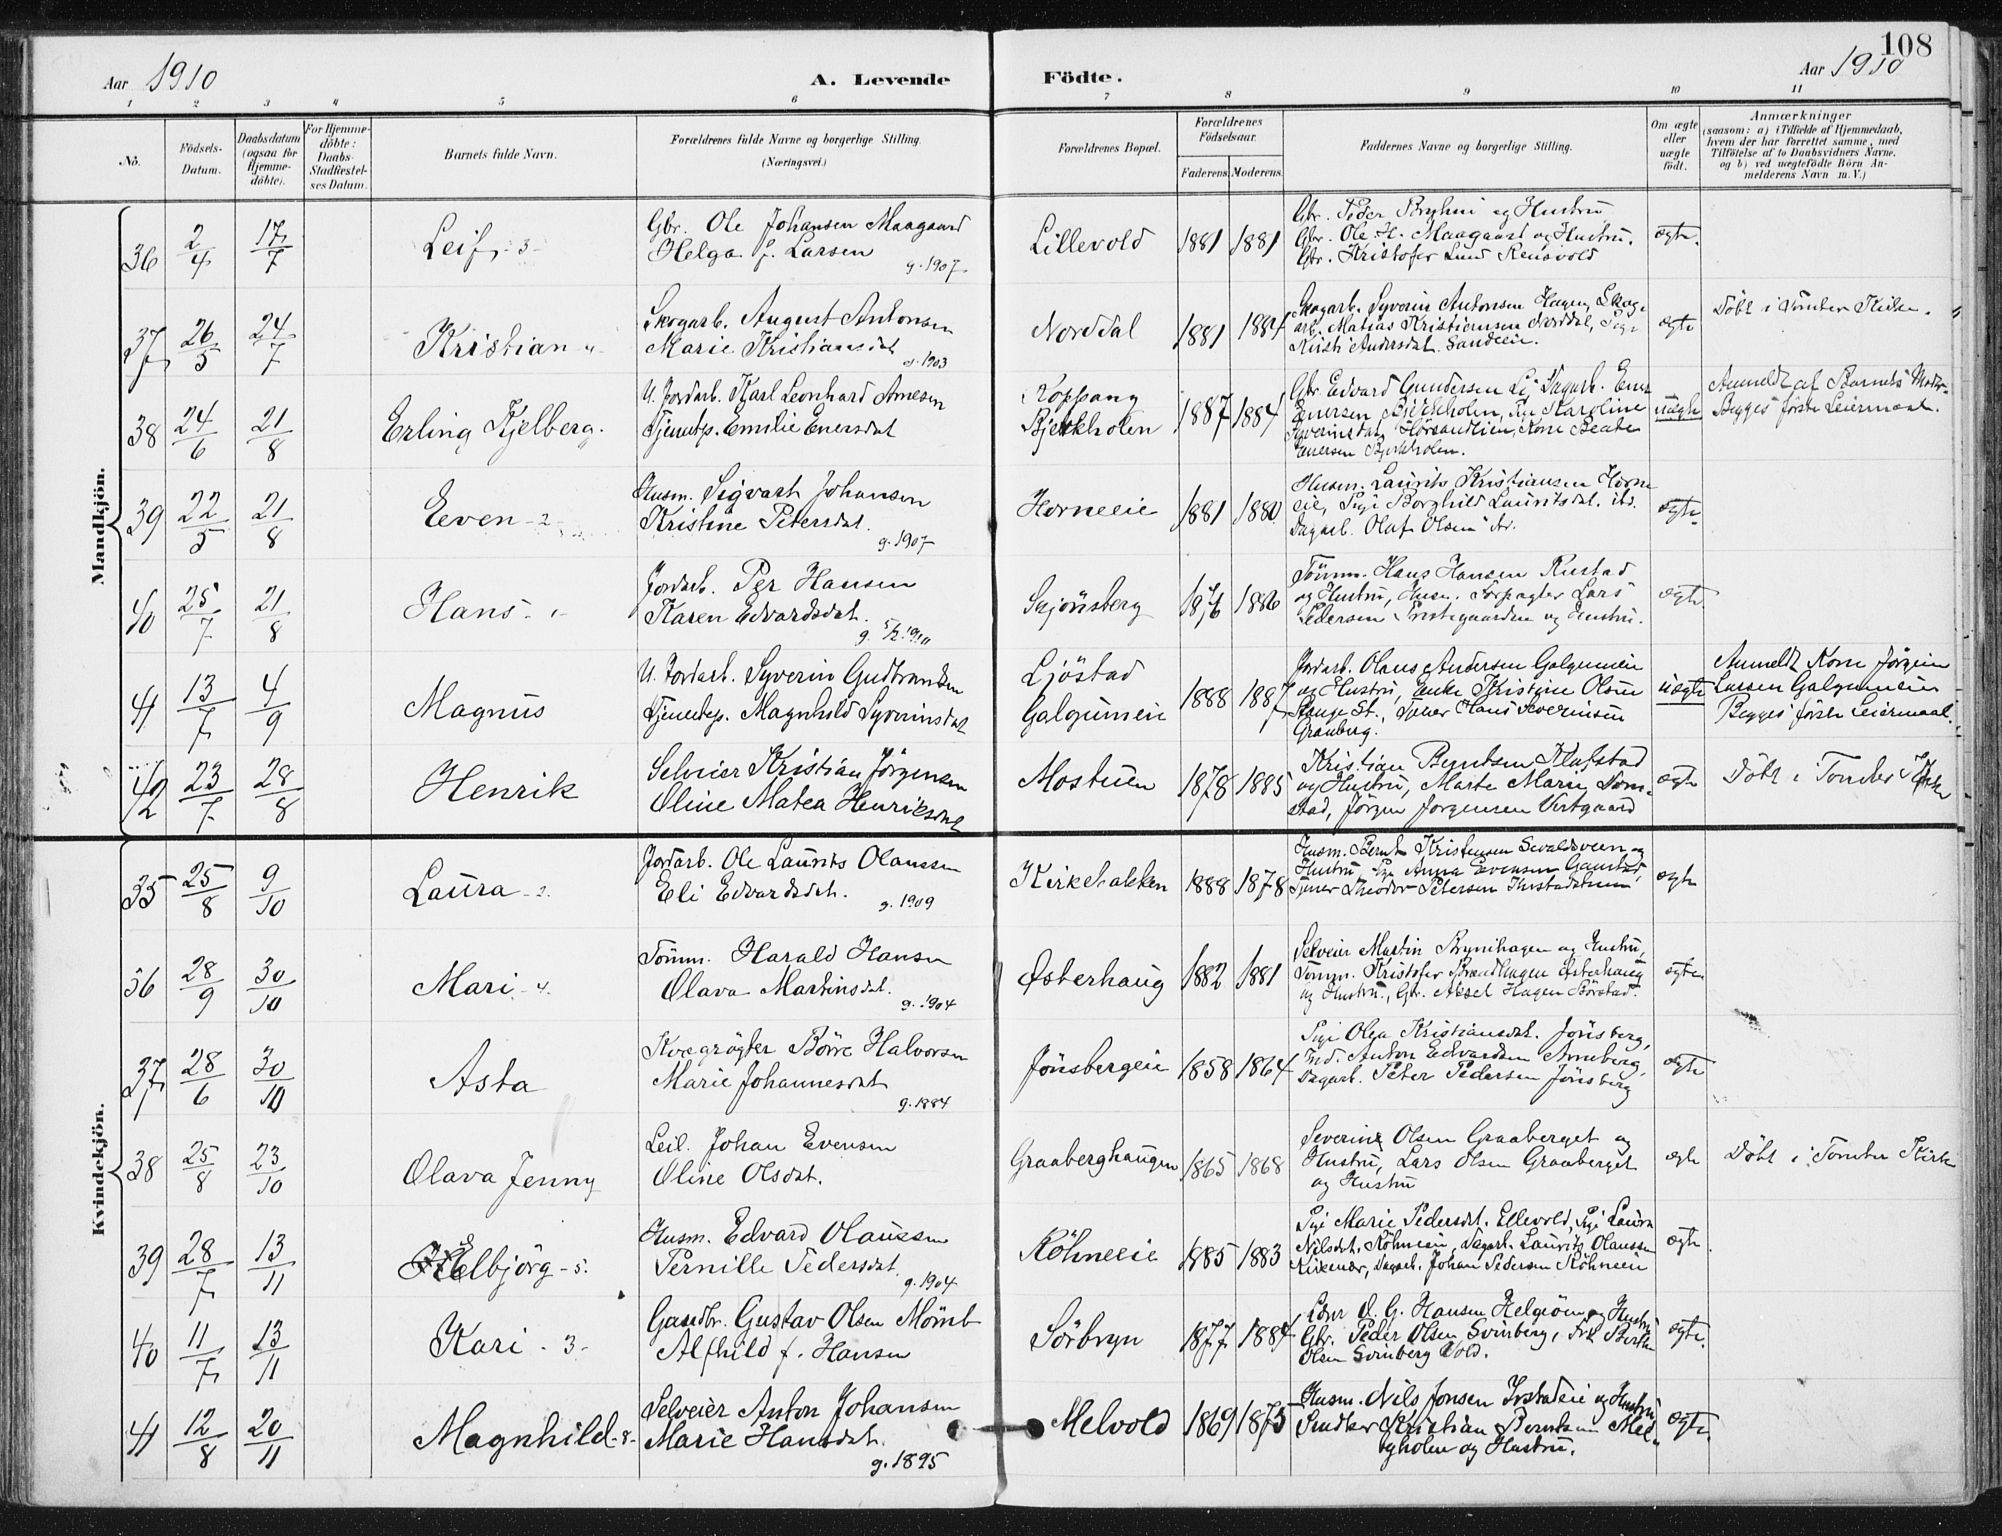 108
Aar 1910
A. Levende
Födte.
Aar 1910
1 2 3 4 5 6 7 8 9 10 11
No.
Födsels-Datum.
Daabsdatum (ogsaa for Hjemme-döbte).
For Hjemme-döbte: Daabs-Stadfæstel-ses Datum.
Barnets fulde Navn.
Forældrenes fulde Navne og borgerlige Stilling.
(Næringsvei.)
Forældrenes Bopæl.
Forældrenes Födselsaar.
Faderens. Moderens.
Faddernes Navne og borgerlige Stilling.
Om ægte eller uægte födt.
Anmærkninger
(saasom: a) i Tilfælde af Hjemmedaab,
hvem der har forrettet samme, med
Tilföielse af to Daabsvidners Navne.
og b) ved uægtefödte Börn An-
melderens Navn m. V.)
Mandkjön.
36 2/4 17/7 Leif 3 Gbr. Ole Johansen Maagaard
Helga f. Larsen g. 1907
Lillevold 1881 1881
Gbr. Peder Bryhni og Hustru
Gbr. Ole H. Maagaard og Hustru.
Gbr. Kristofer Lund Rensvold
ægte.
37 26/5 24/7 Kristian 4 Skogarb. August Antonsen
Marie Kristiansdat g. 1903
Norddal 1881 1884
Skogarb. Syverin Antonsen Hagen, Skog-
arb. Matias Kristiansen Norddal, Pige
Kirsti Andersdat. Sandeie.
ægte
Döbt i Tomter Kirke.
38 24/6 21/8 Erling Kjelberg. U. Jordarb. Karl Leonhard Arnesen
Tjenestep. Emilie Enersdat
Koppang
Bjerkholen 1887 1884
Gbr Edvard Gundersen Li, Dagarb. Ener
Enersen Bjerkholen, Pige Karoline
Kone Beate
Enersen Bjerkholen.
uægte
Anmeldt af Barnets Moder.
Begges förste Leiermaal.
39 22/5 21/8 Even 2 Husm. Sigvart Johansen
Kristine Petersdat. g. 1907
Horneeie 1881 1880
Husm. Laurits Kristiansen Horne-
eie, Pige Borghild Lauritsdat. ibd.
Dagarb. Olaf Olsen do.
ægte
40 25/7 21/8 Hans 1 Jordarb. Per Hansen
Karen Edvardsdat. g. 5/2 1910
Sajönsberg 1876 1886
Tömm. Hans Hansen Rustad
og Hustru, Husm. Forpagter Lars
Pedersen Prestegaarden og Hustru.
ægte
41 13/7 4/9 Magnus U. Jordarb. Syverin Gudbrandsen
Tjenestep. Magnhild Syverinsdat
Ljöstad
Galgumeie 1888 1887
Jordarb. Olaus Andersen Galgumeie
og Hustru, Enke Kristine Olsen
Stange St., Tjener Hans Severinsen
Graaberg.
uægte
Anmeldt Kone Jörgine
Larsen Galgumeie
Begges förste Leiermaal.
42 23/7 28/8 Henrik Selveier Kristian Jörgensen
Oline Matea Henriksdat
Mostuen 1878 1885
Kristian Berntsen Klafstad
og Hustru, Marte Marie Tom-
stad, Jörgen Jorgensen Vestgaard
ægte
Döbt i Tomter Kirke
Kvindekjön.
35 25/8 9/10 Laura 2. Jordarb. Ole Laurits Olaussen
Eli Edvardsdat. g. 1909
Kirkebakken 1888 1878
Husm. Bernt Kristensen Sevaldsveen og
Hustru, Pige Anna Evensen Gamstad,
Tjener Theodor Petersen
ægte
36 28/9 30/10 Mari 4. Tömm. Harald Hansen
Olava Martinsdat. g. 1904
Østerhaug 1882 1881
Selveier Martin Brynihagen og Hustru,
Tömm. Kristofer Brandhagen Østerhaug
og Hustru, Gbr. Aksel Hagen Börstad.
ægte
37 28/6 30/10 Asta Kvægrögter Börre Halvorsen
Marie Johannesdat g. 1884
Jönsbergeie 1858 1864
Pige Olga Kristiansdat. Jönsberg,
Ind. Anton Edvardsen Arneberg,
Dagarb. Peter Pedersen Jönsberg
ægte
38 25/8 23/10 Olava Jenny Leil. Johan Evensen
Oline Olsdat.
Graaberghaugen 1865 1868
Severin Olsen Graaberget og
Hustru, Lars Olsen Graaberget
og Hustru
ægte
Döbt i Tomter Kirke
39 28/7 13/11 Helbjörg 5. Husm. Edvard Olaussen
Pernille Pedersdat. g. 1904
Röhneeie 1885 1883
Pige Marie Pedersdat. Ellevold, Pige Laura
Nilsdat. Röhneeie, Dagarb. Laurits Olaussen
Kirkenær, Dagarb. Johan Pedersen Röhneeie
ægte
40 11/7 13/11 Kari 3. Gaardbr. Gustav Olsen Mömb
Alfhild f. Hansen
Sörbryn 1877 1884
O. G. Hansen Helgöen og Hustru
Gbr. Peder Olsen Svinberg, Frk. Berthe
Olsen Svinberg Vold.
ægte.
41 12/8 20/11 Magnhild 8 Selveier Anton Johansen
Marie Hansdat. g. 1895
Melvold 1869 1875
Husm. Nils Jonsen Ivstadeie og Hustru
Smed Kristian Berntsen Mel-
byholen og Hustru.
ægte.